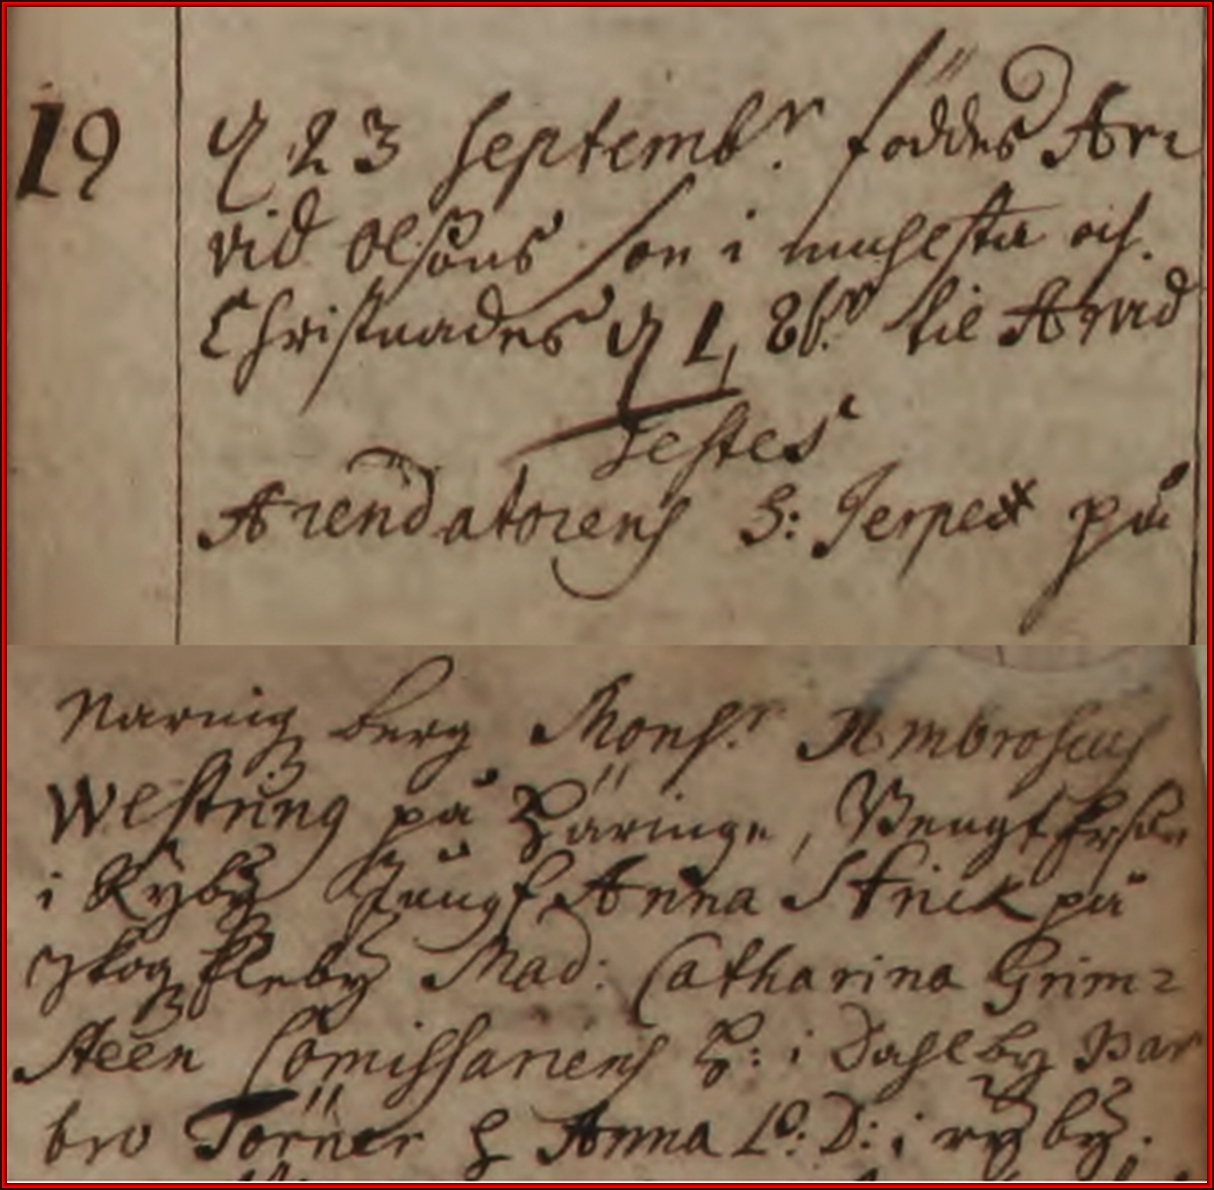 19
d 23 Septembr. föddes Ar=
vid Olsons son i muhlsta och.
Christnades d 1, 8br. til Arvid
Testes
Arendatorens H: Jerpe på
Narnig berg Monsr. Ambrosius
Westring på Häringe, Bengt Erson
i Ryby Jungf Anna Strick på
skog Ekeby Mad: Catharina Grim=
steen Comissariens H: i Dahlby Bar
bro Törner h Anna Ls: D: i ryby.